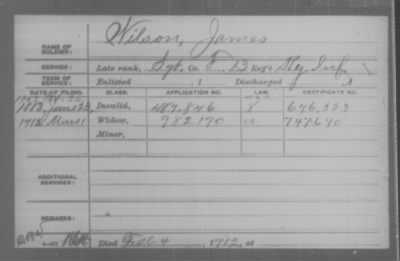 NAME OF SOLDIER: Wilson, James
SERVICE: Late rank, Sgt. Co. F, 13 Reg't Ky Inf.
TERM OF SERVICE: Enlisted , 1 Discharged , 1
DATE OF FILING. CLASS. APPLICATION NO. LAW. CERTIFICATE NO.
1883, June 23 Invalid, 487.846 696.333
1912 Invalid Widow, 982190 a 747690
Minor,
ADDITIONAL SERVICES:
REMARKS:
Died Feb 4, 1912, at